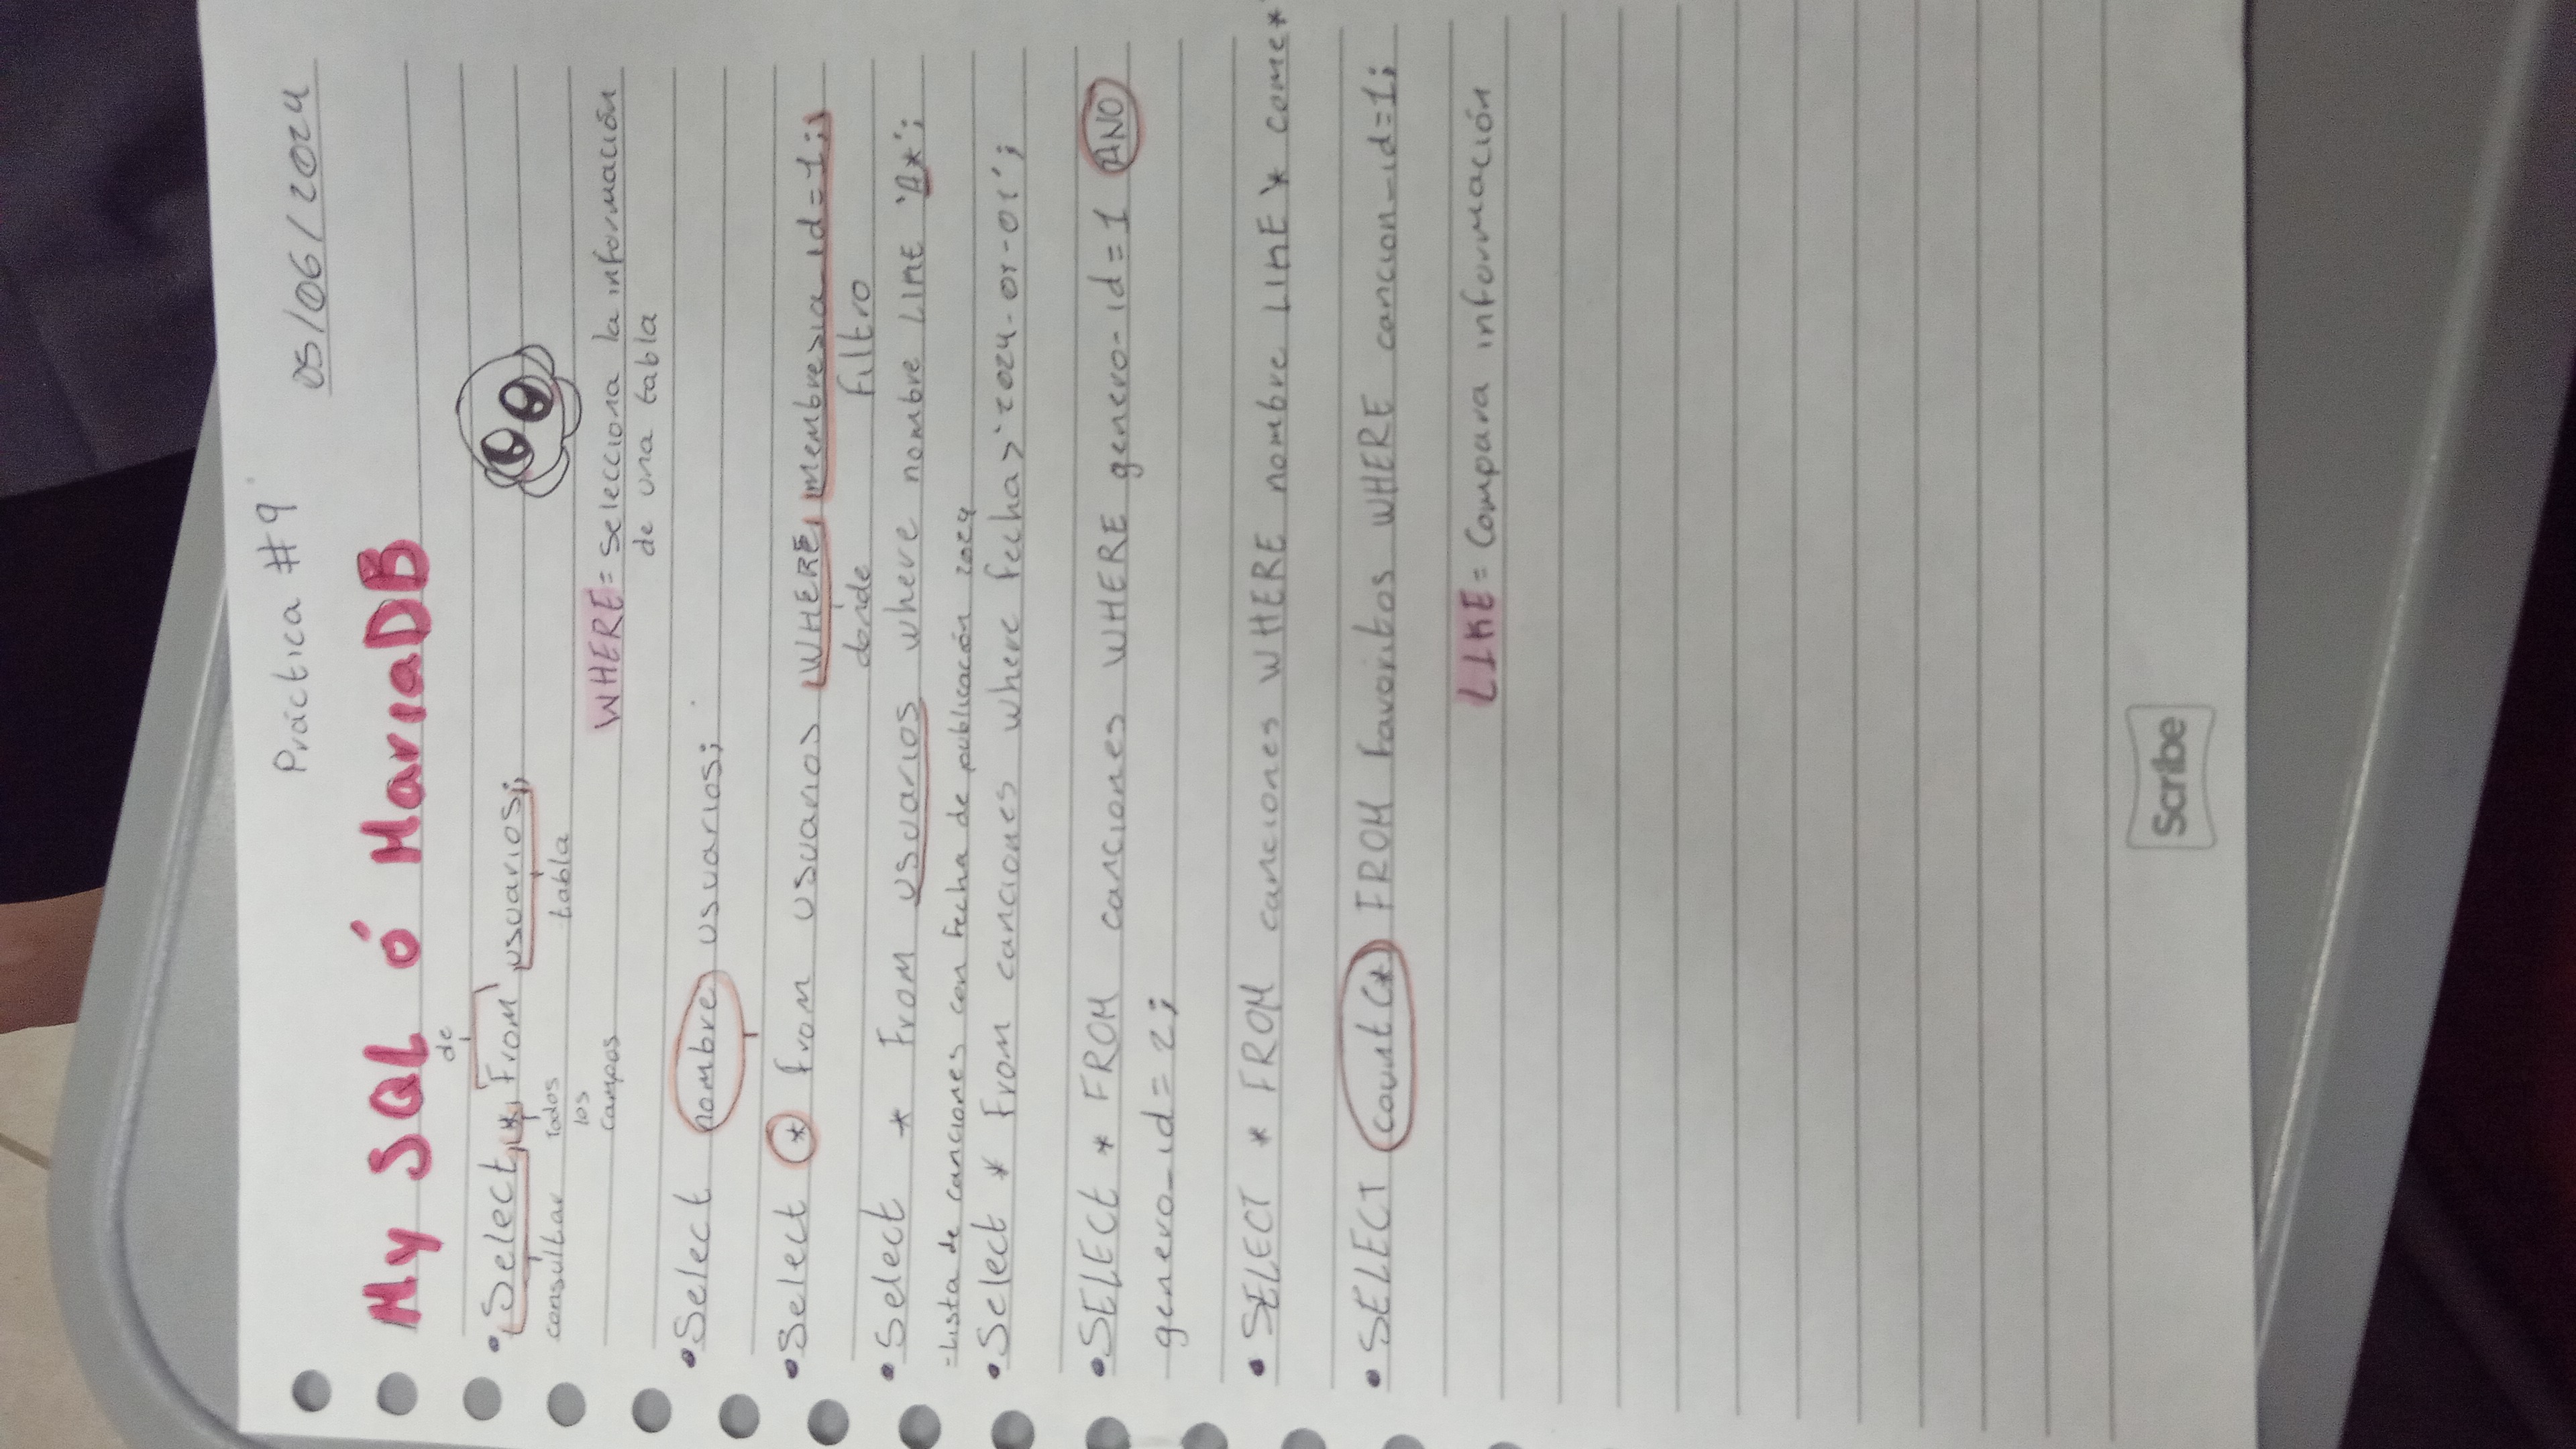 Práctica #9
05/06/2024
My SQL ó MariaDB
de
• Select * From usuarios;
consultar todos tabla
los
campos
WHERE = Selecciona la información
de una tabla
• Select nombre usuarios;
• Select * from usuarios WHERE membresia id=1;
donde Filtro
• Select * From usuarios where nombre LIKE 'A*';
- Lista de canciones con fecha de publicación 2024
• Select * From canciones where fecha > '2024-01-01';
• SELECt * FROM canciones WHERE genero-id=1 AND
genero_id = 2;
• SELECT * FROM canciones WHERE nombre LIKE '* come*
• SELECT count(*) FROM Favoritos WHERE cancion_id=1;
LIKE = Compara información
Scribe